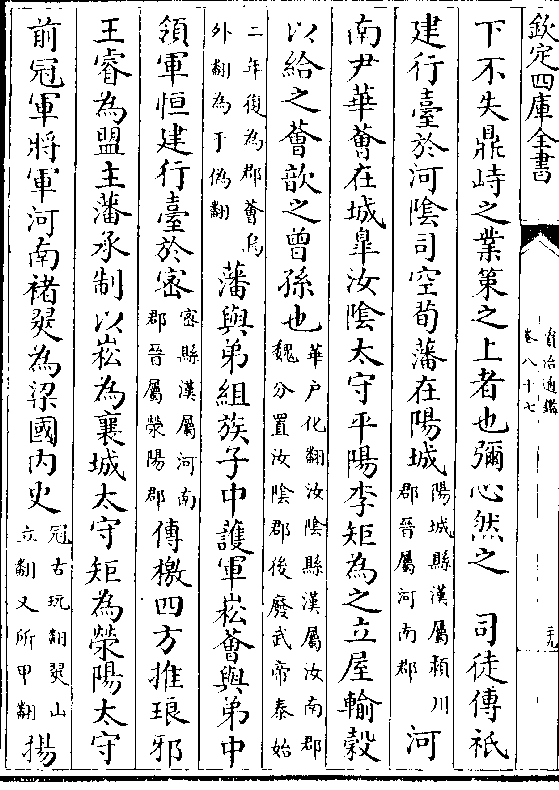 欽定四庫全書
資治通鑑
卷八十七
下不失鼎峙之業策之上者也彌心然之　司徒傅祗
建行臺於河陰司空荀藩在陽城陽城縣漢屬潁川
郡晉屬河南郡河
南尹華薈在城皐汝陰太守平陽李矩為之立屋輸穀
以給之薈歆之曾孫也華戶化翻汝陰縣漢屬汝南郡
魏分置汝陰郡後廢武帝泰始
二年復為郡薈烏
外翻為于偽翻藩與弟組族子中護軍崧薈與弟中
領軍恒建行臺於密密縣漢屬河南
郡晉屬滎陽郡傳檄四方推琅邪
王睿為盟主藩承制以崧為襄城太守矩為滎陽太守
前冠軍將軍河南褚翜為梁國内史冠古玩翻翜山
立翻又所甲翻揚